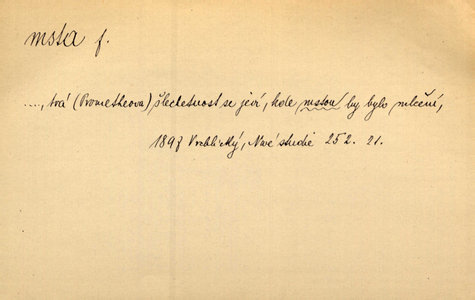 msta f.
...., tvá (Prometheova) šlechetnost se jeví, kde mstou by bylo mlčení,
1897 Vrchlický, Nové studie 252. 21.